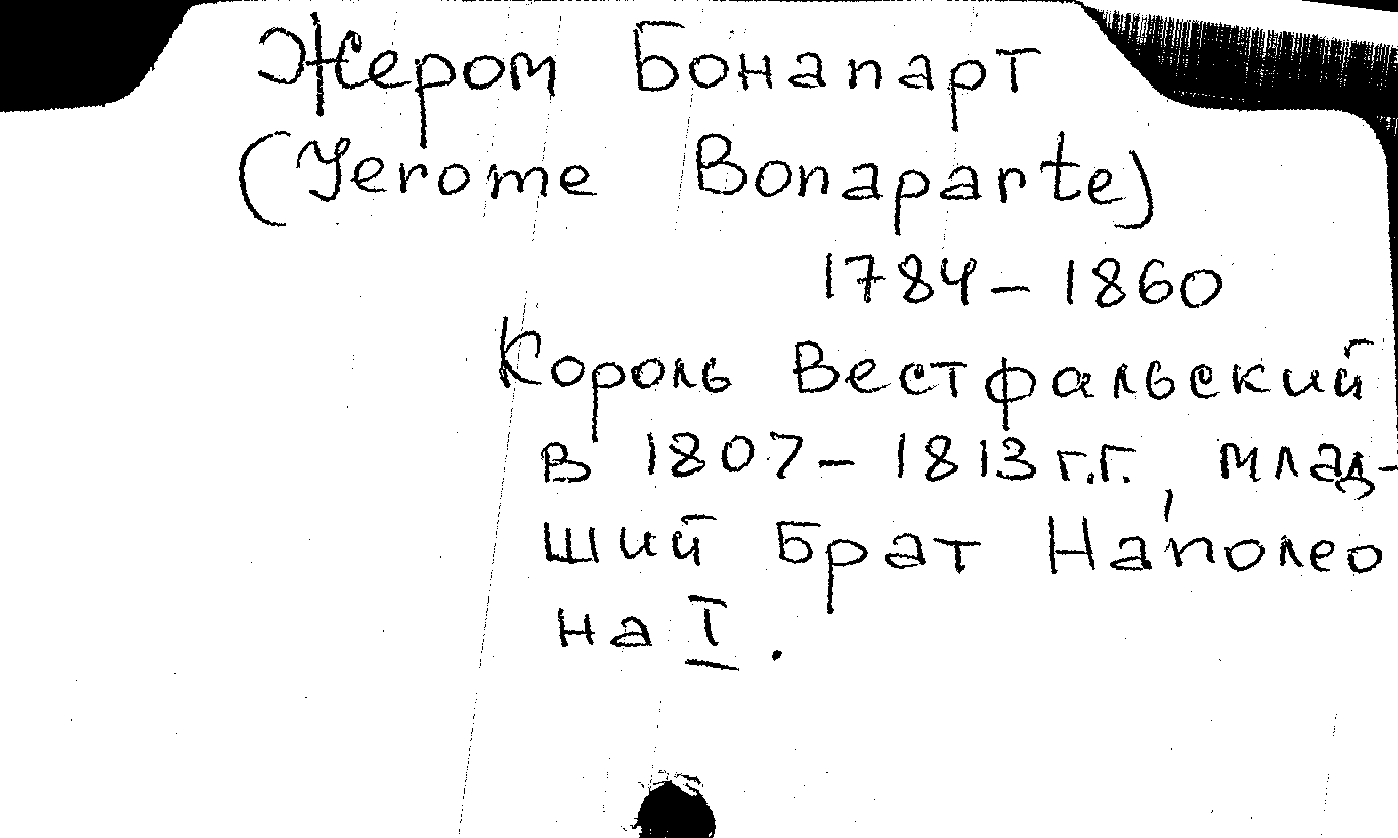 Жером Бонапарт
(Jerome Bonaparte)
1784 – 1860
Король Вестфальский
в 1807 – 1813 г.г., млад-
ший брат Наполео
на I.